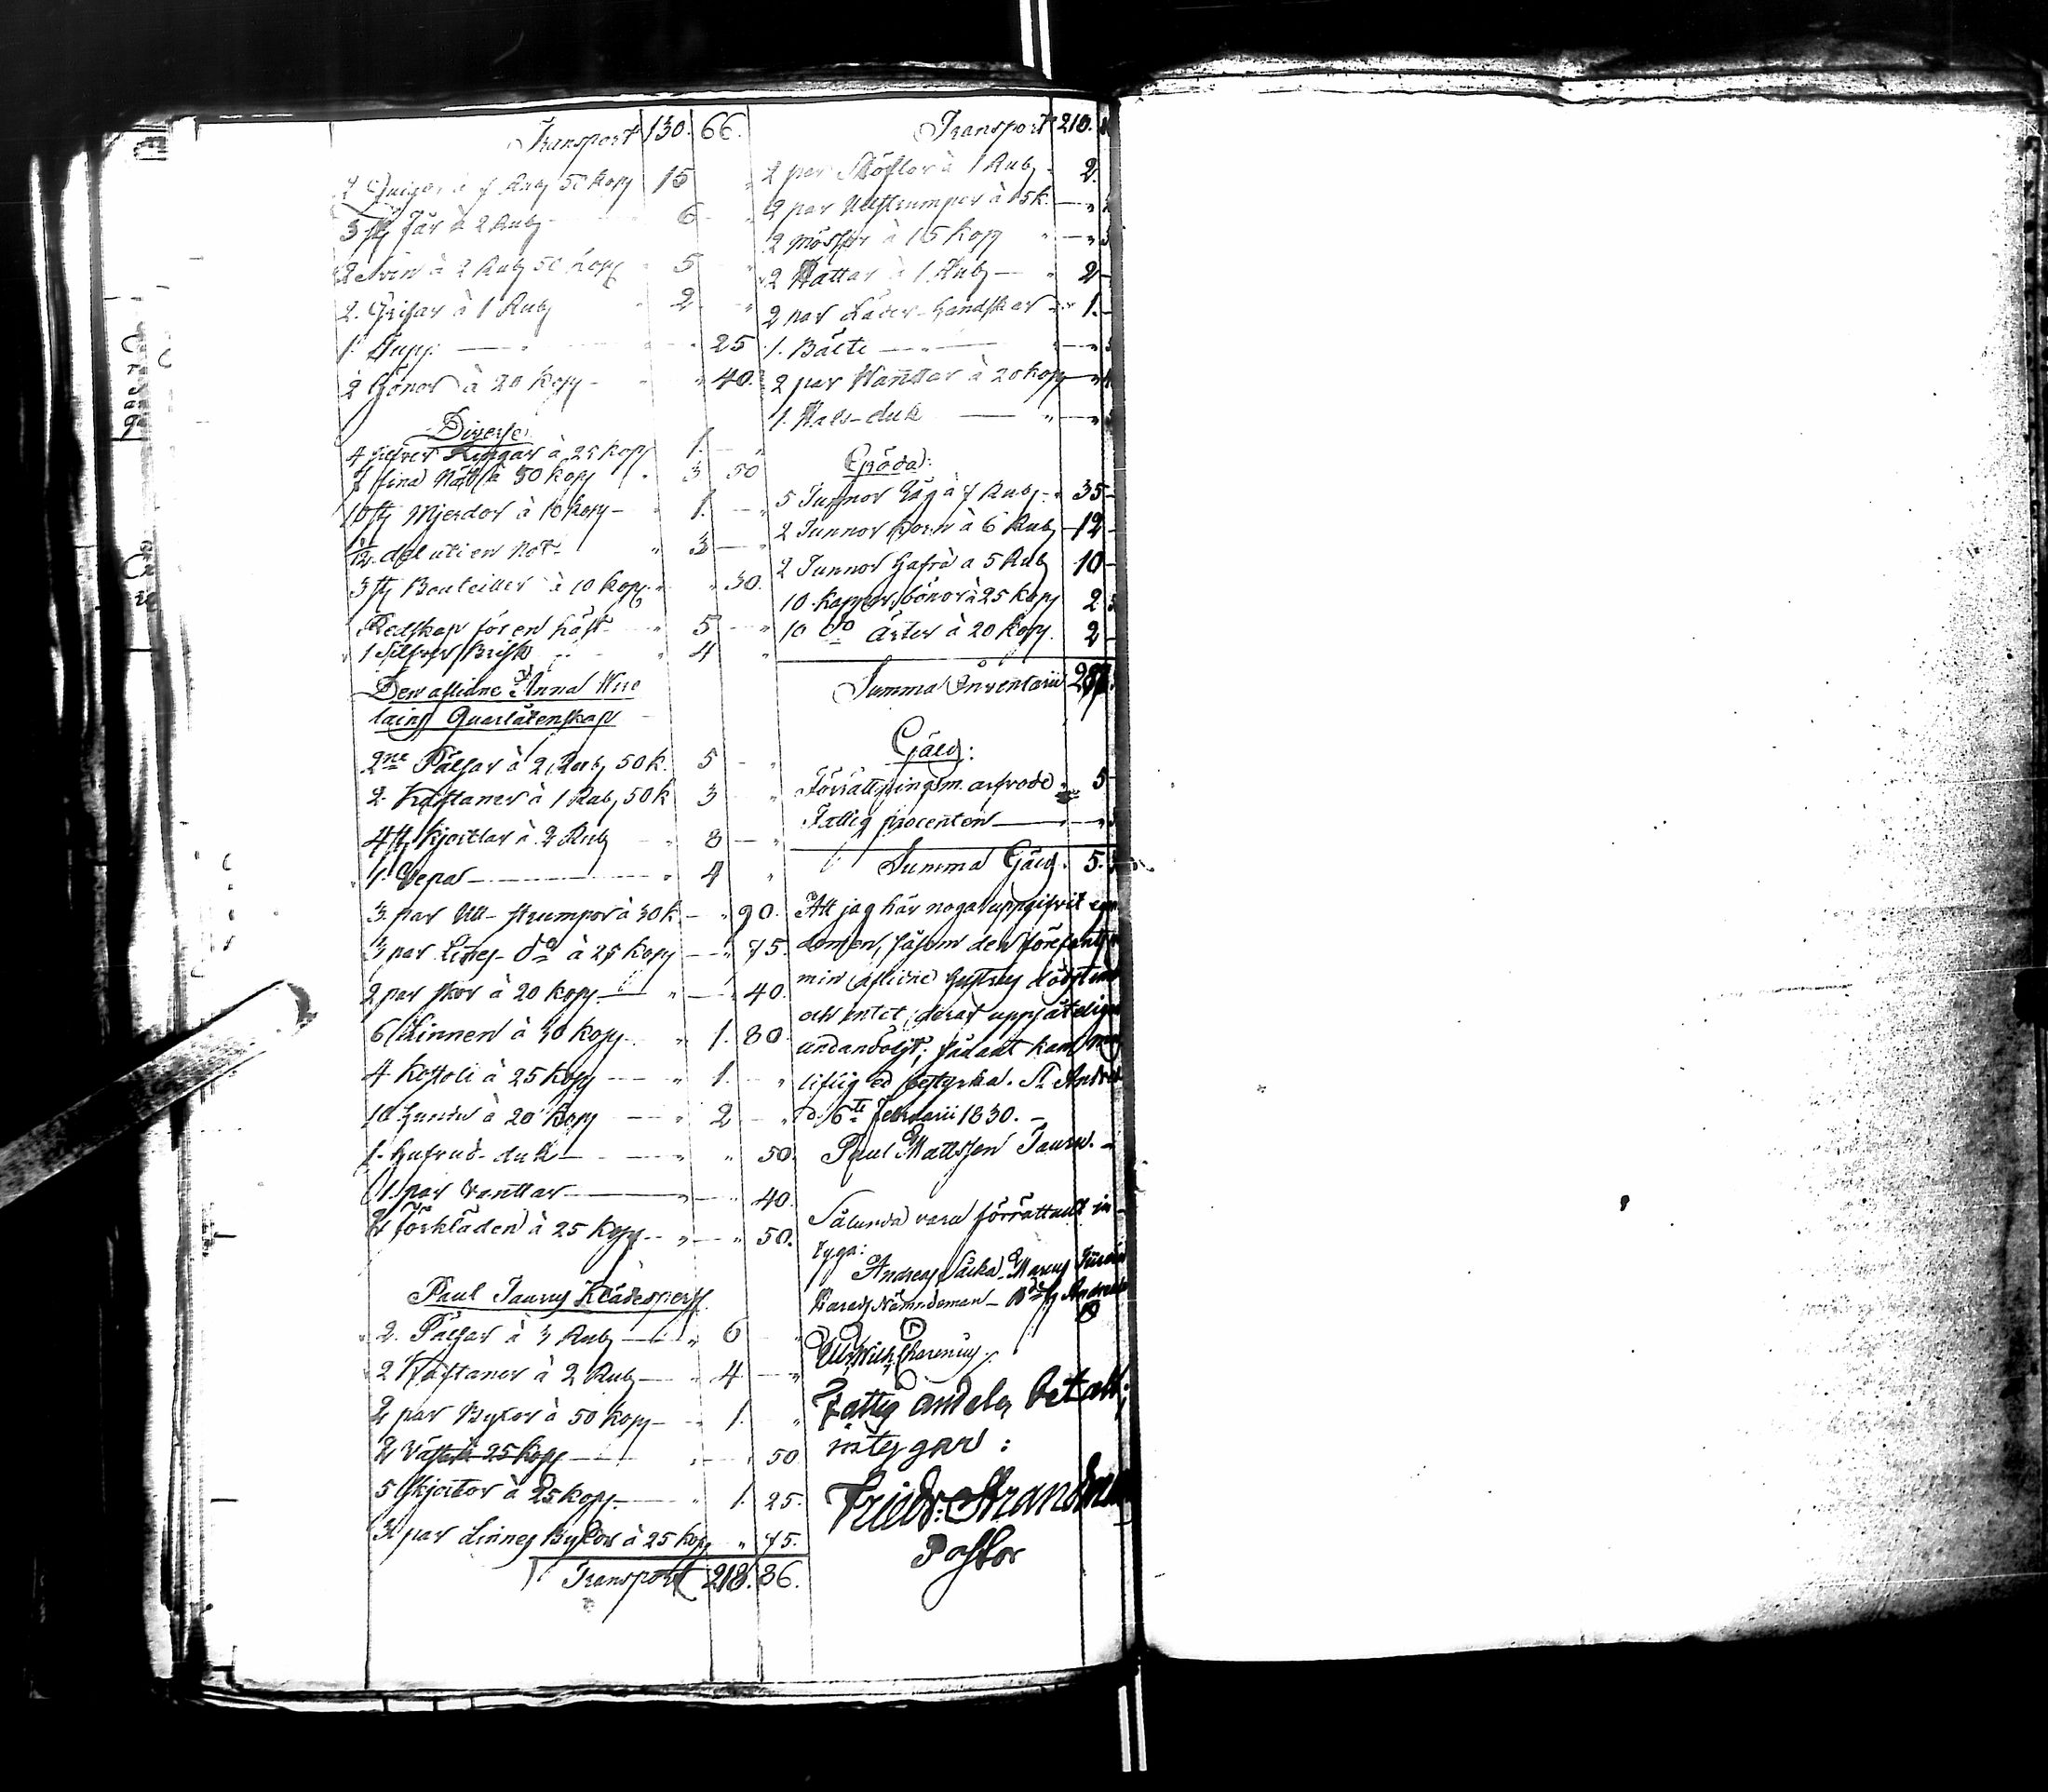 Transport 130. 66.
2 Quigor à 7 Rub 50 kop 15 "
3 st Får à 2 Rub 6 "
2 Svin à 2 Rub 50 kop 5 "
2. Grisar à 1 Rub 2 "
1. Tupp " 25
2 Hönor à 20 kop " 40.
Diverse
4 silfver Ringar à 25 kop 1. "
7 fina Nät à 50 kop 3 50
10 st Mjerdor à 10 kop 1. "
1/12 del uti en Not " 3 "
3 st Bouteiller à 10 kop " 30.
Redskap för en häst 5 "
1 Silfver Brisk 4 "
Den aflidne Anna Wiro
lains Quarlåtenskap
2ne Pälsar à 2 Rub 50 k. 5 "
2. Kaftaner à 1 Rub 50 k 3 "
4 st. Kjortlar à 2 Rub 8 "
1. Vepa 4 "
3 par Ull-strumpor à 30 k " 90.
3 par Linnes do à 25 kop " 75.
2 par skor à 20 kop " 40.
6 Linnen à 30 kop " 1. 80.
4 à 25 kop " 1. "
10 à 20 kop " 2 "
1. hufvud-duk " " 50.
1 par vanttar " 40.
2 förkläden à 25 kop " 50.
Paul Taurus Klädespers.
2. Pälsar à 3 Rub " 6 "
2 Kaftaner à 2 Rub " 4 "
2 par Byxor à 50 kop " 1. "
2 Västar 25 kop " 50
5 Skjortor à 25 kop " 1. 25.
3 par Linnes Byxor à 25 kop " 75.
Transport 218. 86.
Transport 218.
2 par Stöflor à 1 Rub 2.
2 par Ullstrumpor à 15 k. "
2 Mössor à 15 kop "
2 Hattar à 1 Rub " 2
2 par Läder-handskar " 1.
1. Bälte "
2 par Vanttar à 20 kop "
1. Hals-duk "
Gröda:
5 Tunnor Råg à 7 Rub " 35
2 Tunnor Korn à 6 Rub 12
2 Tunnor Hafra à 5 Rub 10
10. kappor bönor à 25 kop 2
10 do ärter à 20 kop. 2
Summa Inventarii
Gäld:
Förrättningsm. arfvode 5
Fattig procenten "
Summa Gäld. 5.
Att jag här noga uppgifvit egen
domen, såsom den förefants
min aflidne Hustrus dödstima
och intet deraf uppsåteligen
undandöljt; sådant kan med
liflig ed bestyrka. St Andreæ
d. 6te Februarii 1830. –
Paul Mattsson Tauru. –
Sålunda vara förrättadt in-
tyga:
Andreas Marcus
Härads Nämndeman
Fattig andelen betalt;
intygar:
Friedr: Strandman
Pastor